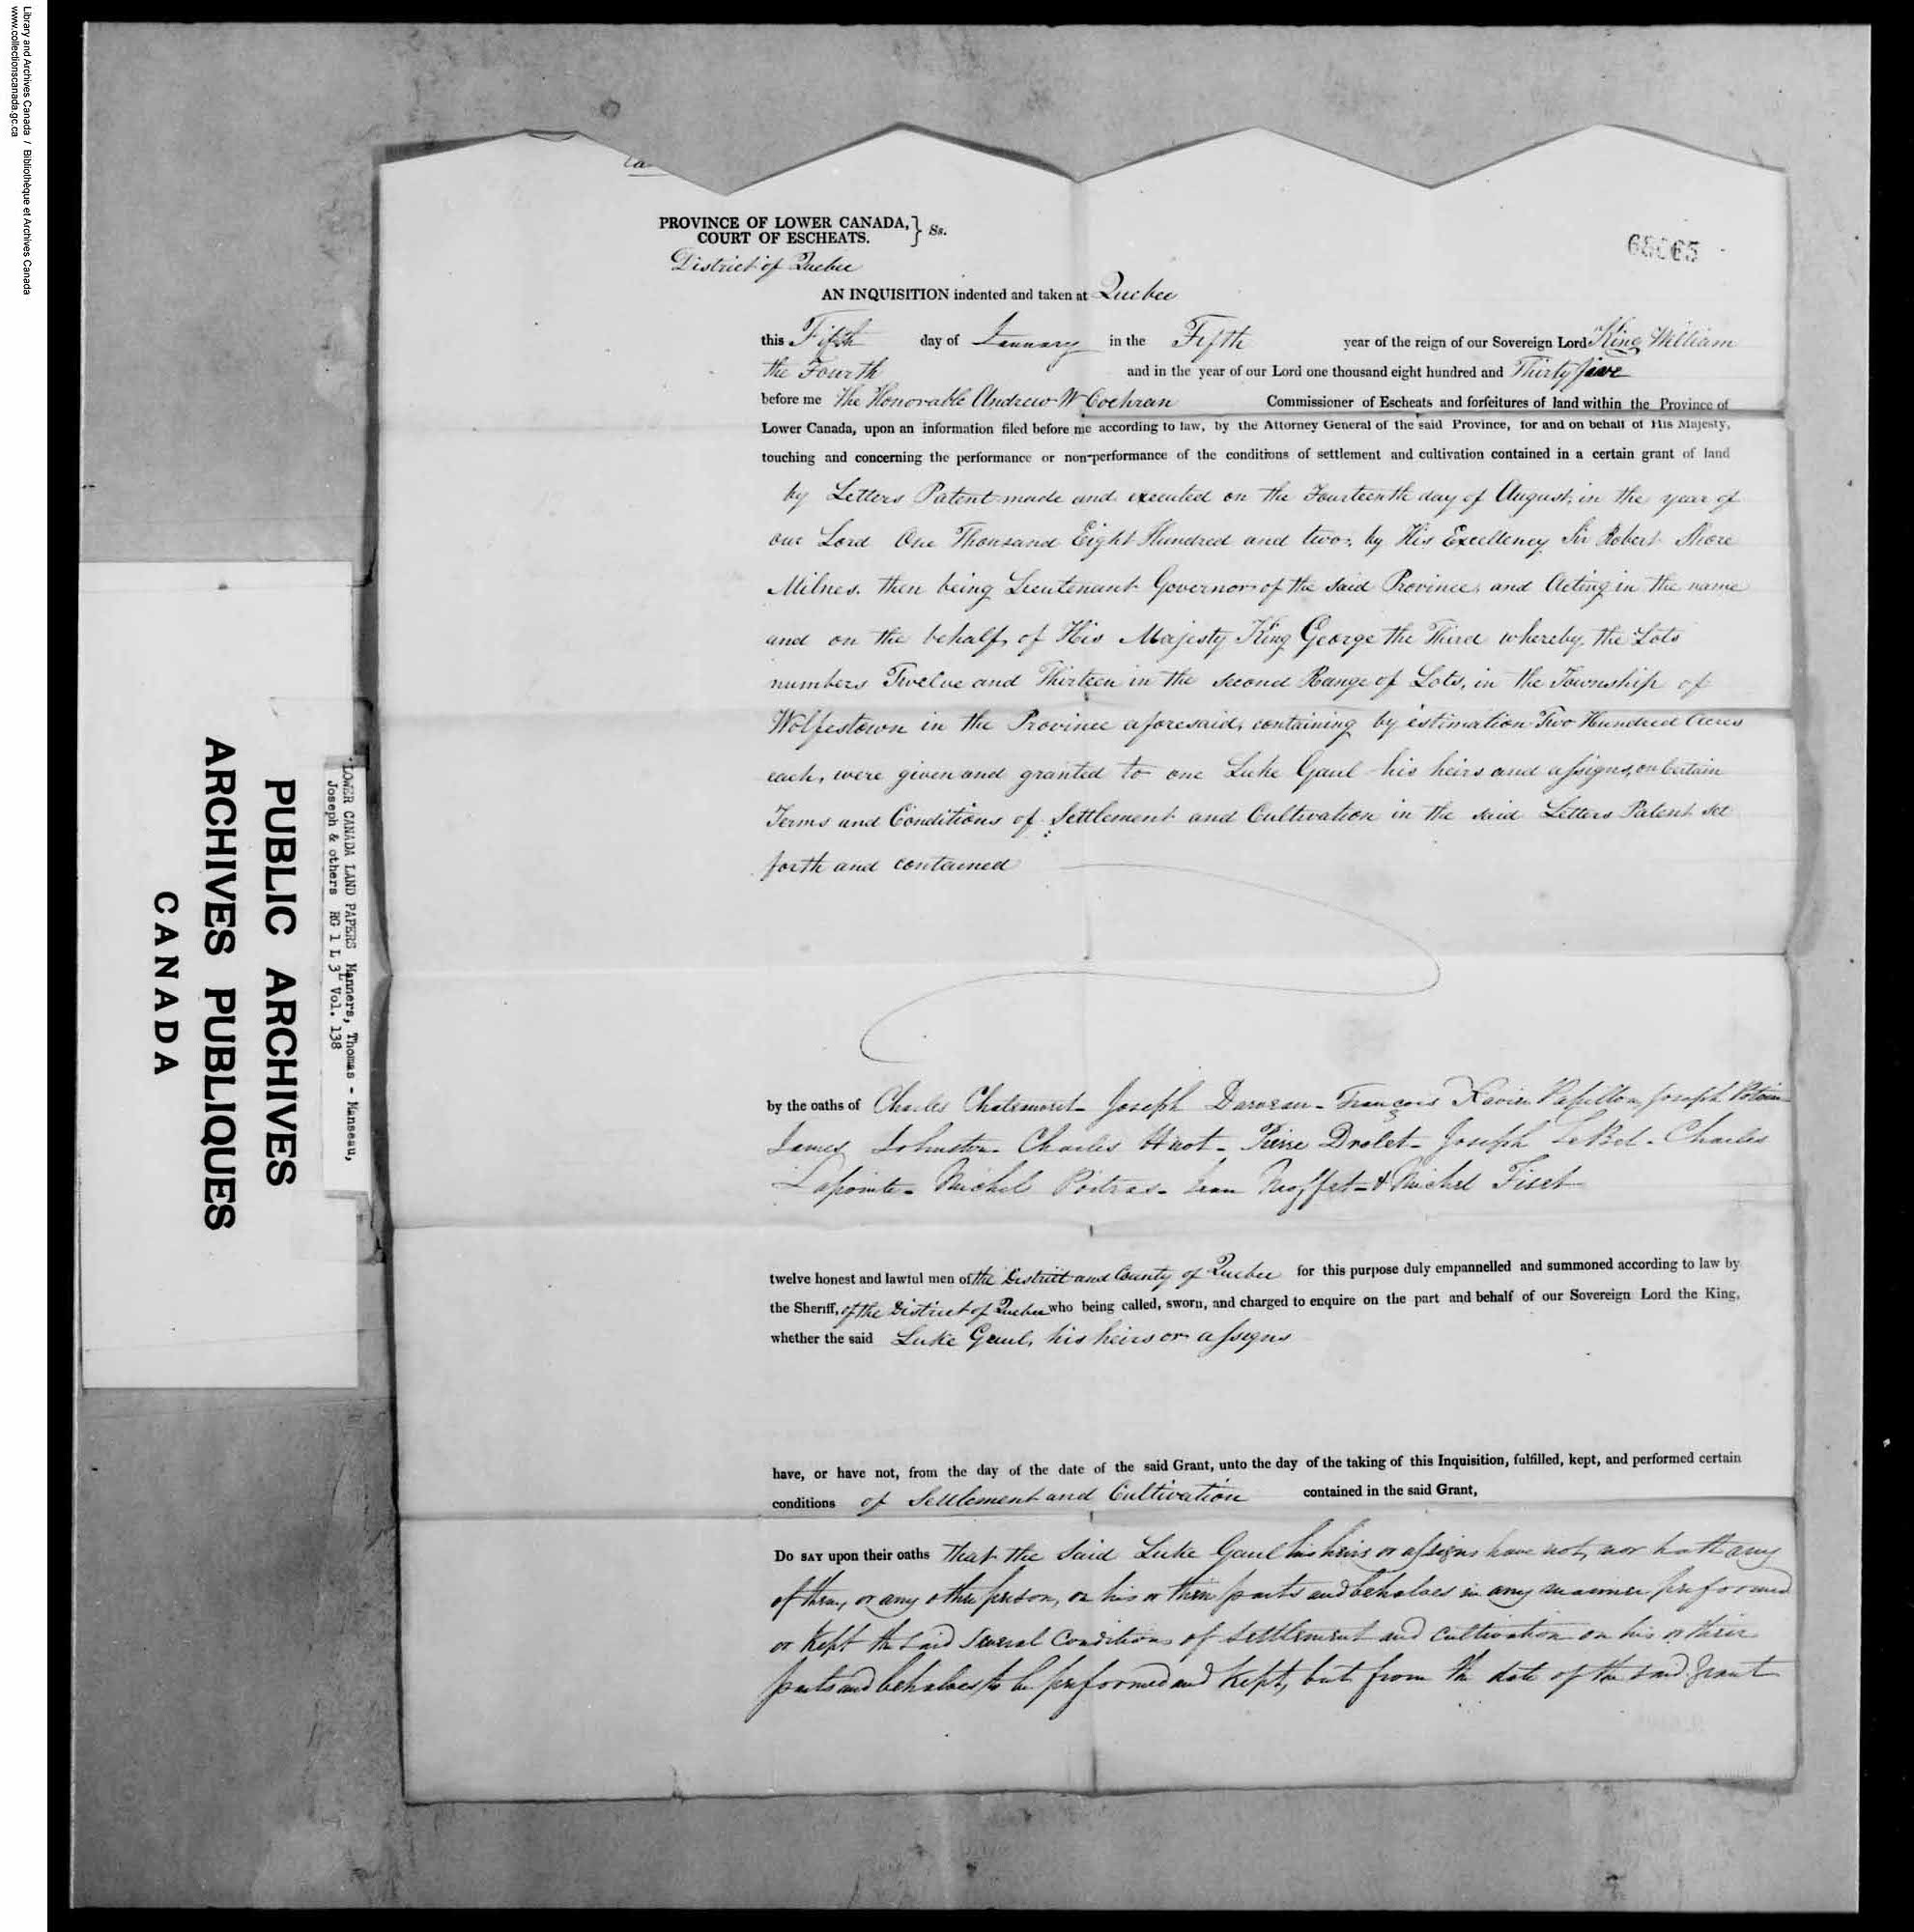 Library and Archives Canada / Bibliothèque et Archives Canada
www.collectionscanada.gc.ca
PUBLIC ARCHIVES
ARCHIVES PUBLIQUES
CANADA
LOWER CANADA LAND PAPERS Manners, Thomas - Manseau,
Joseph & others RG 1 L 3L Vol. 138
PROVINCE OF LOWER CANADA, } Ss.
COURT OF ESCHEATS.
District of Quebec
AN INQUISITION indented and taken at Quebec
this Fifth day of January in the Fifth year of the reign of our Sovereign Lord King William
the Fourth and in the year of our Lord one thousand eight hundred and Thirty five
before me The Honorable Andrew W Cochran Commissioner of Escheats and forfeitures of land within the Province of
Lower Canada, upon an information filed before me according to law, by the Attorney General of the said Province, for and on behalf of His Majesty,
touching and concerning the performance or non-performance of the conditions of settlement and cultivation contained in a certain grant of land
by Letters Patent made and executed on the Fourteenth day of August, in the year of
our Lord One Thousand Eight Hundred and two, by His Excellency Sir Robert Shore
Milnes, then being Lieutenant Governor of the said Province, and Acting in the name
and on the behalf of His Majesty King George the Third whereby the Lots
numbers Twelve and Thirteen in the second Range of Lots, in the Township of
Wolfestown in the Province aforesaid, containing by estimation Two Hundred Acres
each, were given and granted to one Luke Gaul his heirs and assigns, on Certain
Terms and Conditions of Settlement and Cultivation in the said Letters Patent set
forth and contained
by the oaths of Charles Joseph François Xavier Papillon Joseph
James Johnston - Charles Huot - Pierre Drolet - Joseph LeBel - Charles
Lapointe - Michel Poitras - Jean Moffet - & Michel Fiset
twelve honest and lawful men of the District and County of Quebec for this purpose duly empannelled and summoned according to law by
the Sheriff, of the District of Quebec who being called, sworn, and charged to enquire on the part and behalf of our Sovereign Lord the King,
whether the said Luke Gaul, his heirs or assigns
have, or have not, from the day of the date of the said Grant, unto the day of the taking of this Inquisition, fulfilled, kept, and performed certain
conditions of Settlement and Cultivation contained in the said Grant,
Do SAY upon their oaths that the said Luke Gaul his heirs or assigns have not, nor hath any
of them, or any other person, on his or their parts and behalves in any manner performed
or kept the said several conditions of settlement and cultivation on his or their
parts and behalves to be performed and kept, but from the date of the said grant